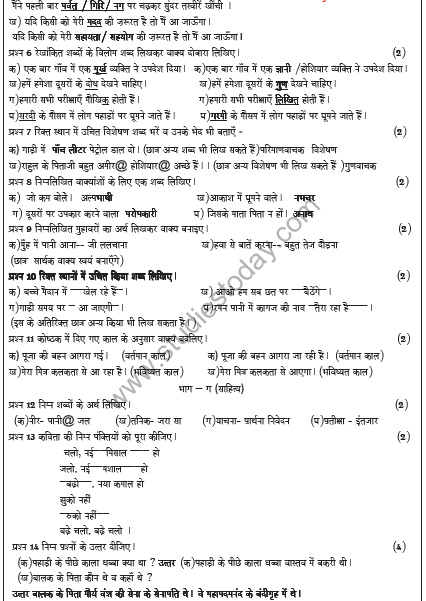 मैंने पहली बार पर्वत / गिरि/ नग पर चढ़कर सुंदर तस्वीरें खींची ।
ख) यदि किसी को मेरी मदद की ज़रूरत है तो मैं आ जाऊँगा।
यदि किसी को मेरी सहायता/ सहयोग की ज़रूरत है तो मैं आ जाऊँगा।
प्रश्न 6 रेखांकित शब्दों के विलोम शब्द लिखकर वाक्य दोबारा लिखिए। (2)
क) एक बार गाँव में एक मूर्ख व्यक्ति ने उपदेश दिया। क)एक बार गाँव में एक ज्ञानी /होशियार व्यक्ति ने उपदेश दिया।
ख)हमें हमेशा दूसरों के दोष देखने चाहिए। ख)हमें हमेशा दूसरों के गुण देखने चाहिए।
ग)हमारी सभी परीक्षाएँ मौखिक होती हैं। ग)हमारी सभी परीक्षाएँ लिखित होती हैं।
घ)सरदी के मौसम में लोग पहाड़ों पर घूमने जाते हैं। घ)गरमी के मौसम में लोग पहाड़ों पर घूमने जाते हैं।
प्रश्न 7 रिक्त स्थान में उचित विशेषण शब्द भरें व उनके भेद भी बताएँ - (2)
क) गाड़ी में पाँच लीटर पेट्रोल डाल दो। (छात्र अन्य शब्द भी लिख सकते हैं)परिमाणवाचक विशेषण
ख)राहुल के पिताजी बहुत अमीर@ होशियार@ अच्छे हैं।। (छात्र अन्य विशेषण भी लिख सकते हैं )गुणवाचक
प्रश्न 8 निम्नलिखित वाक्यांशों के लिए एक शब्द लिखिए। (2)
क) जो कम बोले। अल्पभाषी ख)आकाश में घूमने वाले। नभचर
ग) दूसरों पर उपकार करने वाला परोपकारी घ) जिसके माता पिता न हों। अनाथ
प्रश्न 9 निम्नलिखित मुहावरों का अर्थ लिखकर वाक्य बनाइए। (2)
क)मुँह में पानी आना-- जी ललचाना ख)हवा से बातें करना-- बहुत तेज दौड़ना
(छात्र सार्थक वाक्य स्वयं बनाएँगे)
प्रश्न 10 रिक्त स्थानों में उचित क्रिया शब्द लिखिए। (2)
क) बच्चे मैदान में —खेल रहे हैं—। ख) आओ हम सब छत पर —बैठेंगे—।
ग)गाड़ी समय पर – आ जाएगी—। घ)रमन पानी में कागज की नाव –तैरा रहा है——।
(इस के अतिरिक्त छात्र अन्य क्रिया भी लिख सकते हैं।)
प्रश्न 11 कोष्ठक में दिए गए काल के अनुसार वाक्य बदलिए। (2)
क) पूजा की बहन आगरा गई। (वर्तमान काल) क) पूजा की बहन आगरा जा रही है। (वर्तमान काल)
ख)मेरा मित्र कलकता से आ रहा है। (भविष्यत काल) ख)मेरा मित्र कलकता से आएगा। (भविष्यत काल)
भाग – ग (साहित्य)
प्रश्न 12 निम्न शब्दों के अर्थ लिखिए। (2)
(क)नीर- पानी@ जल (ख)तनिक- जरा सा (ग)याचना- प्रार्थना निवेदन (घ)प्रतीक्षा - इंतजार
प्रश्न 13 कविता की निम्न पंक्तियों को पूरा कीजिए। (2)
चलो, नई—मिसाल —— हो
जलो, नई—मशाल——हो
—बढ़ो—, नया कमाल हो
झुको नहीं
—रुको नहीं—
बढ़े चलो, बढ़े चलो ।
प्रश्न 14 निम्न प्रश्नों के उत्तर दीजिए। (4)
(क)पहाड़ी के पीछे काला धब्बा क्या था ? उत्तर (क)पहाड़ी के पीछे काला धब्बा वास्तव में बकरी थी।
(ख)बालक के पिता कौन थे व कहाँ थे ?
उत्तर बालक के पिता मौर्य वंश की सेना के सेनापति थे। वे महापदमनंद के बंदीगृह में थे।
www.studiestoday.com